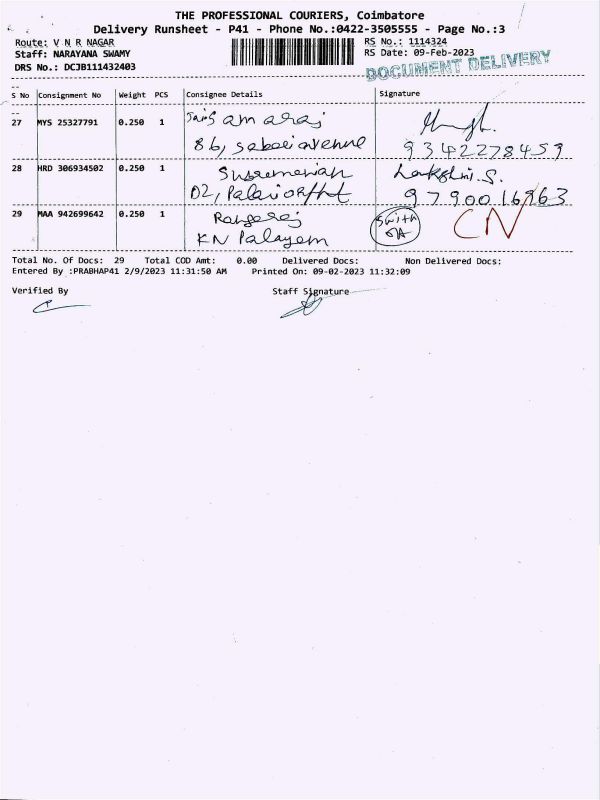 THE PROFESSIONAL COURIERS, Coimbatore
Delivery Runsheet - P41 - Phone No.:0422-3505555 - Page No.:3
Route: V N R NAGAR
RS No.: 1114324
Staff: NARAYANA SWAMY
RS Date: 09-Feb-2023
DRS No.: DCJB111432403
DOCUMENT DELIVERY
S No Consignment No Weight PCS Consignee Details Signature
27 MYS 25327791 0.250 1
86, sabari avenue
9342278459
28 HRD 306934502 0.250 1 Lakshmi.S.
D2,
9790016963
29 MAA 942699642 0.250 1 Rangaraj CN
KN Palayem
Total No. Of Docs: 29 Total COD Amt: 0.00 Delivered Docs: Non Delivered Docs:
Entered By :PRABHAP41 2/9/2023 11:31:50 AM Printed On: 09-02-2023 11:32:09
Verified By Staff Signature